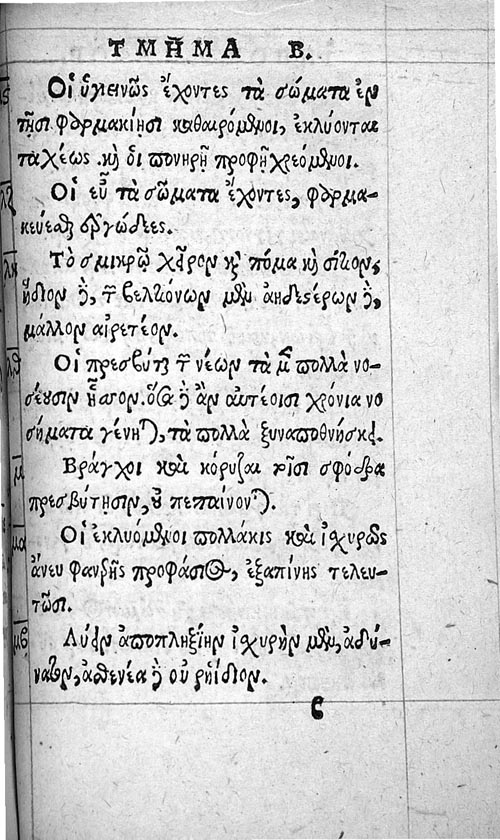 ΤΜΗ͂ΜΑ Β.
Οἱ ὑγιεινῶς ἔχοντες τὰ σώματα ἐν
τῇσι φαρμακίῃσι καθαιρόμενοι, ἐκλύονται
ταχέως. καὶ ὁι πονηρῇ προφῇ χρεόμενοι.
Οἱ εὖ τὰ σώματα ἔχοντες, φαρμα-
κεύεσθαι ἐργώδεες.
Τὸ σμικρῷ χεῖρον καὶ πόμα καὶ σιτίον,
ἥδιον δὲ, τῶν βελτιόνων μὲν ἀηδεστέρων δὲ,
μᾶλλον αἱρετέον.
Οἱ πρεσβύται τῶν νέων τὰ μὲν πολλὰ νο-
σέουσιν ἧσσον. ὅσα δὲ ἂν αὐτέοισι χρόνια νο
σήματα γένηται, τὰ πολλὰ ξυναποθνήσκει.
Βράγχοι καὶ κόρυζαι τοῖσι σφόδρα
πρεσβύτῃσιν, οὐ πεπαίνονται.
Οἱ ἐκλυόμενοι πολλάκις καὶ ἰσχυρῶς
ἄνευ φανερῆς προφάσιος, ἐξαπίνης τελευ-
τῶσι.
Λύειν ἀποπληξίην ἰσχυρὴν μὲν, ἀδύ-
νατον, ἀσθενέα δὲ οὐ ῥηίδιον.
ς